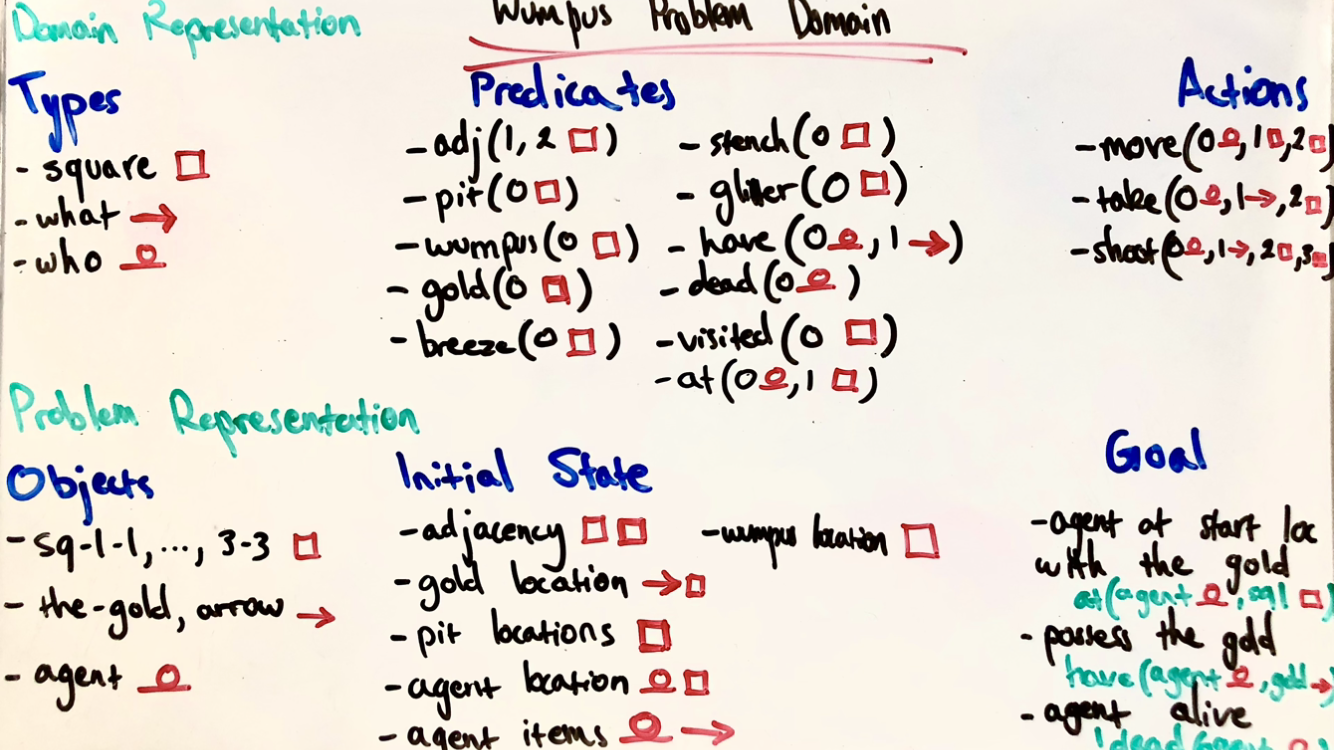 Domain Representation
Wumpus Problem Domain
Types
- square
- what →
- who
Predicates
- adj(1, 2 )
- pit(0 )
- wumpus(0 )
- gold(0 )
- breeze(0 )
- stench(0 )
- glitter(0 )
- have (0 , 1 →)
- dead (0 )
- visited (0 )
- at (0 , 1 )
Actions
- move(0 , 1 , 2
- take(0 , 1→, 2
- shoot(0 , 1→, 2 , 3
Problem Representation
Objects
- sq-1-1, ..., 3-3
- the-gold, arrow →
- agent
Initial State
- adjacency
- gold location →
- pit locations
- agent location
- agent items →
- wumpus location
Goal
- agent at start loc
with the gold
at(agent , sq1 )
- possess the gold
have(agent , gold →
- agent alive
!dead(agent